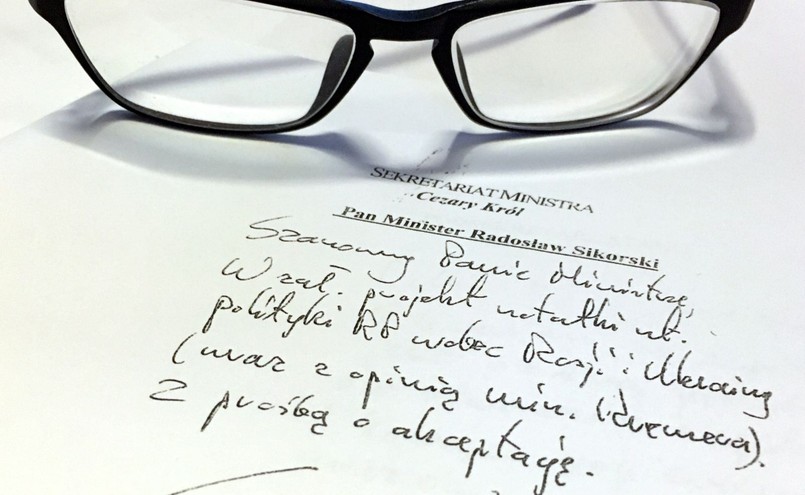 SEKRETARIAT MINISTRA
Cezary Król
Pan Minister Radosław Sikorski
Szanowny Panie Ministrze,
W zał. projekt notatki nt.
polityki RP wobec Rosji i Ukrainy
(wraz z opinią min.
z prośbą o akceptację.